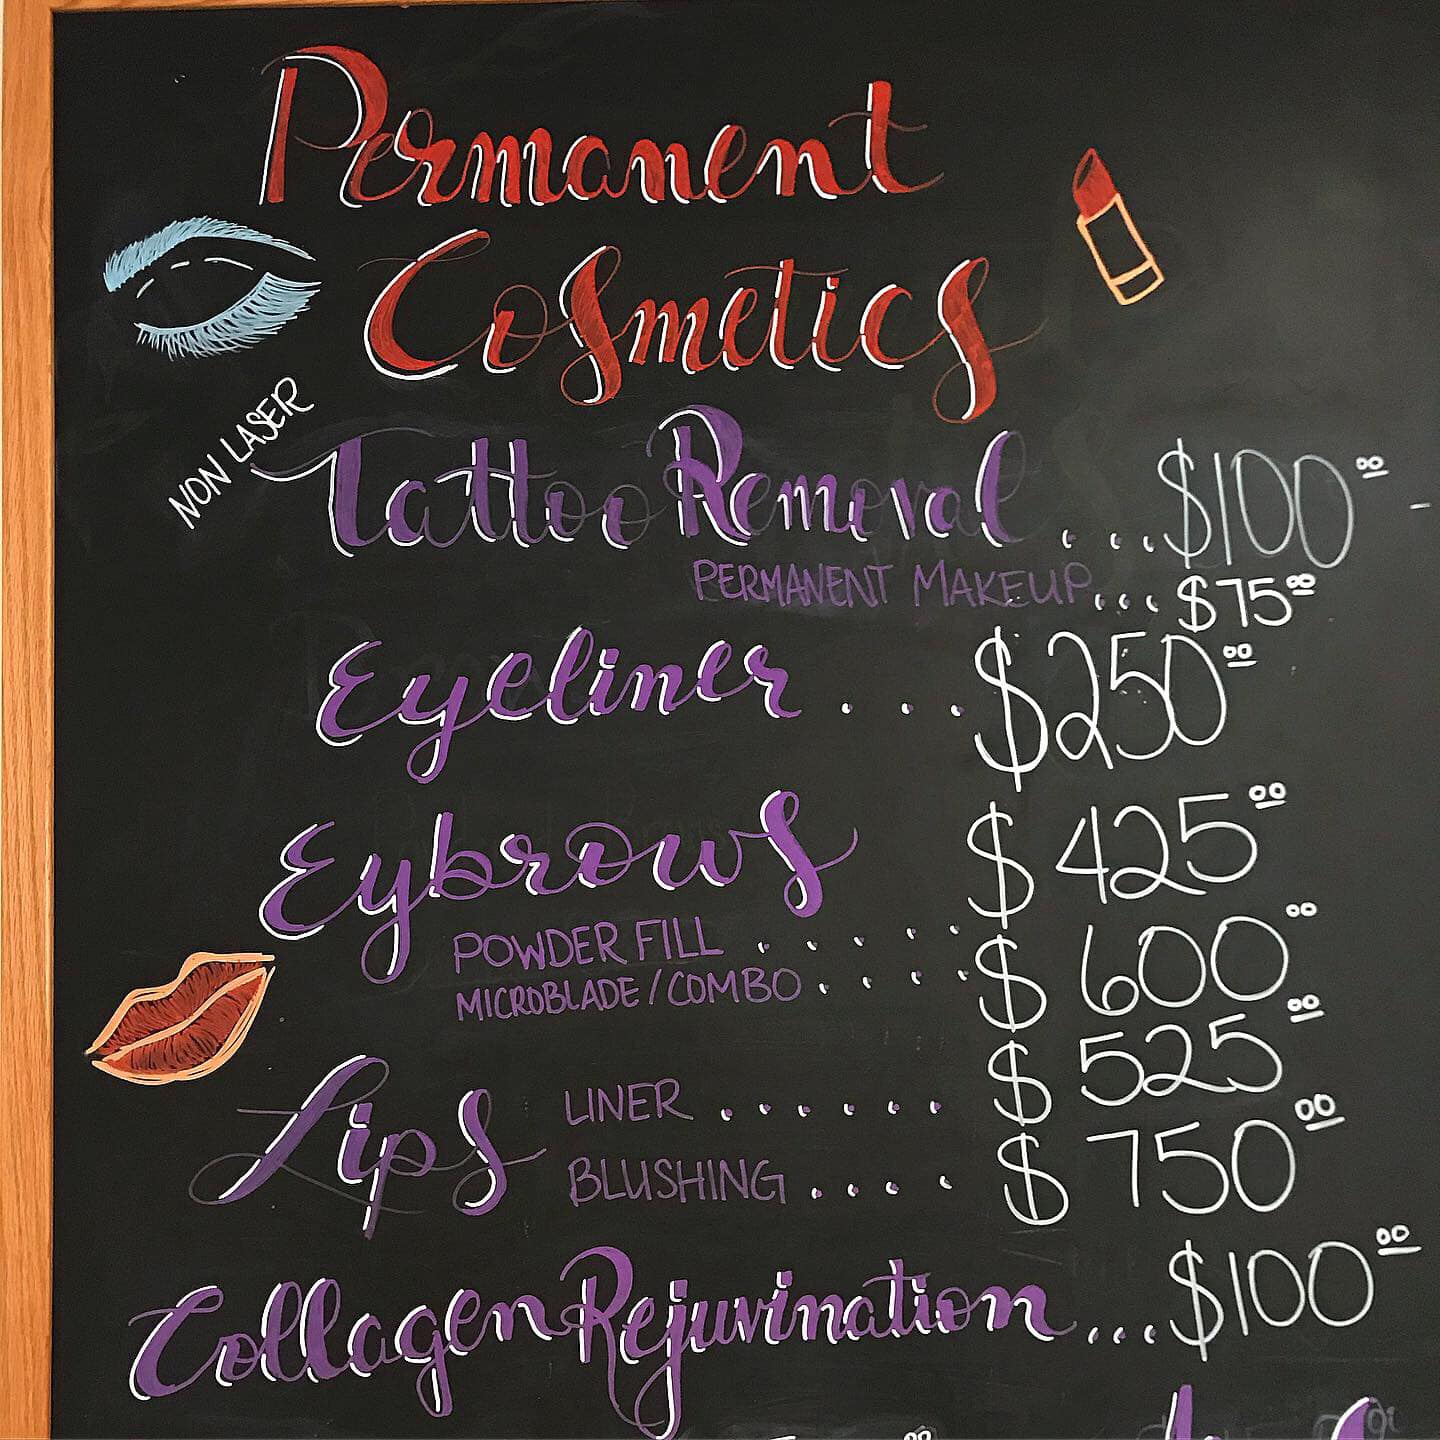 Permanent
Cosmetics
NON LASER
Tattoo Removal . . . . $100.00 -
PERMANENT MAKEUP . . . $75.00
Eyeliner . . . $250.00
Eybrows
POWDER FILL . . . . . $425.00
MICROBLADE / COMBO . . . . . $600.00
Lips LINER . . . . . . $525.00
BLUSHING . . . . $750.00
Collagen Rejuvination . . . $100.00